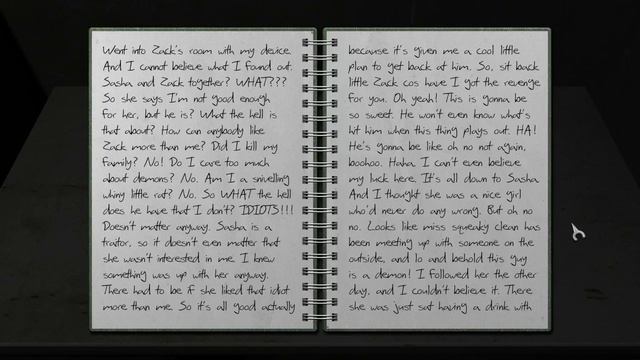 Went into Zack's room with my device.
And I cannot believe what I found out.
Sasha and Zack together? WHAT???
So she says I'm not good enough
for her, but he is? What the hell is
that about? How can anybody like
Zack more than me? Did I kill my
family? No! Do I care too much
about demons? No. Am I a snivelling
whiny little rat? No. So WHAT the hell
does he have that I don't? IDIOTS!!!
Doesn't matter anyway. Sasha is a
traitor, so it doesn't even matter that
she wasn't interested in me. I knew
something was up with her anyway.
There had to be if she liked that idiot
more than me. So it's all good actually
because it's given me a cool little
plan to get back at him. So, sit back
little Zack cos have I got the revenge
for you. Oh yeah! This is gonna be
so sweet. He won't even know what's
hit him when this thing plays out. HA!
He's gonna be like oh no not again,
boohoo. Haha. I can't even believe
my luck here. It's all down to Sasha.
And I thought she was a nice girl
who'd never do any wrong. But oh no
no. Looks like miss squeaky clean has
been meeting up with someone on the
outside, and lo and behold this guy
is a demon! I followed her the other
day, and I couldn't believe it. There
she was just sat having a drink with